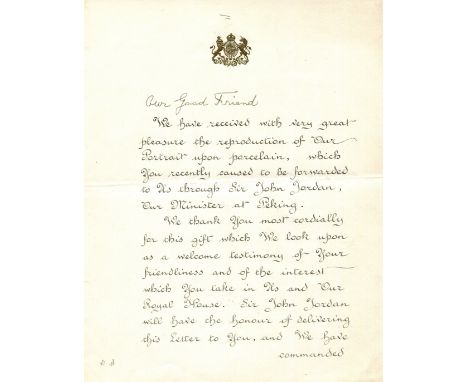 Our Good Friend
We have received with very great
pleasure the reproduction of Our
Portrait upon porcelain, which
You recently caused to be forwarded
to Us through Sir John Jordan,
Our Minister at Peking.
We thank You most cordially
for this gift which We look upon
as a welcome testimony of Your
friendliness and of the interest
which You take in Us and Our
Royal House. Sir John Jordan
will have the honour of delivering
this Letter to You, and We have
commanded